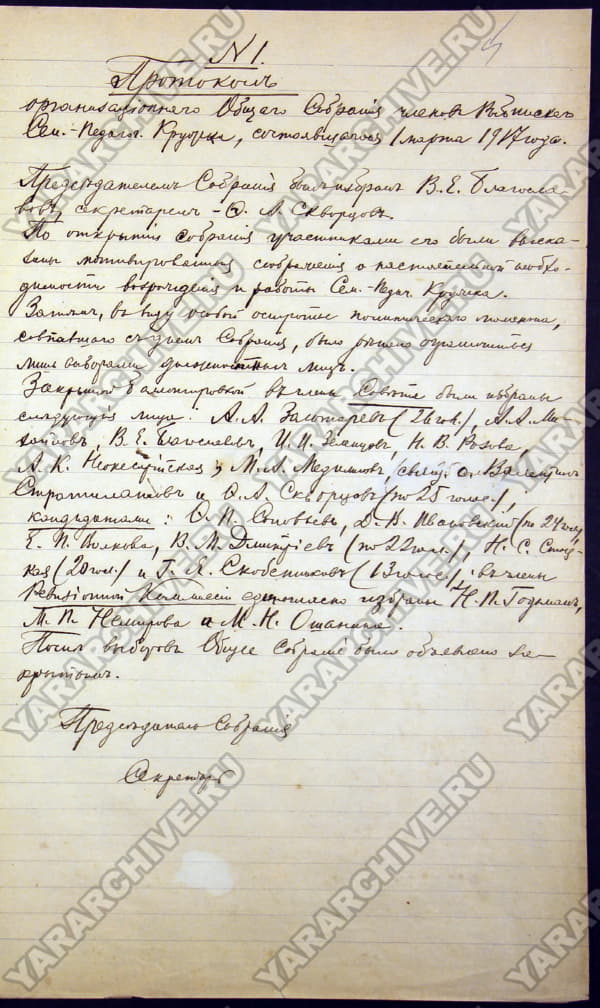 N 1.
Протоколъ
организаціоннаго Общаго Собранія членовъ Рыбинскаго
Сем.-Педагог. Кружка, состоявшагося 1 марта 1917 года.
Предсѣдателемъ Собранія былъ избранъ В. Е. Благосла-
вовъ, секретаремъ - Ѳ. А. Скворцовъ.
По открытіи собранія участниками его были выска-
заны мотивированныя соображенія о настоятельной необхо-
димости возрожденія и работы Сем.-Педаг. Кружка.
Затѣмъ, въ виду особой остроты политическаго момента,
совпавшаго съ днемъ Собранія, было рѣшено ограничиться
лишь выборами должностныхъ лицъ.
Закрытой баллотировкой въ члены Совѣта были избраны
следующія лица: А. А. Золотаревъ (26 гол.), А. А. Ми-
хайловъ, В. Е. Благославовъ, И. И. Н. В. Розова,
А. К. М. А. свящ. о. Валентинъ
Стратилатовъ и Ѳ. А. Скворцовъ (по 25 голос.),
кандидатами: О. Н. Соловьевъ, Д. Ивановскій (по 24 гол.),
Е. П. Волкова, В. М. Дмитріевъ (по 22 гол.), Н. С.
(20 гол.) и Г. Я. Скобенниковъ (13 голос.); въ члены
Ревизіонной Комиссіи единогласно избраны Н. П. Годманъ,
М. П. Немирова и М. Н. Ошанина.
Послѣ выборовъ Общее Собраніе было объявлено за-
крытымъ.
Предсѣдатель Собранія
Секретарь
YARARCHIVE.RU